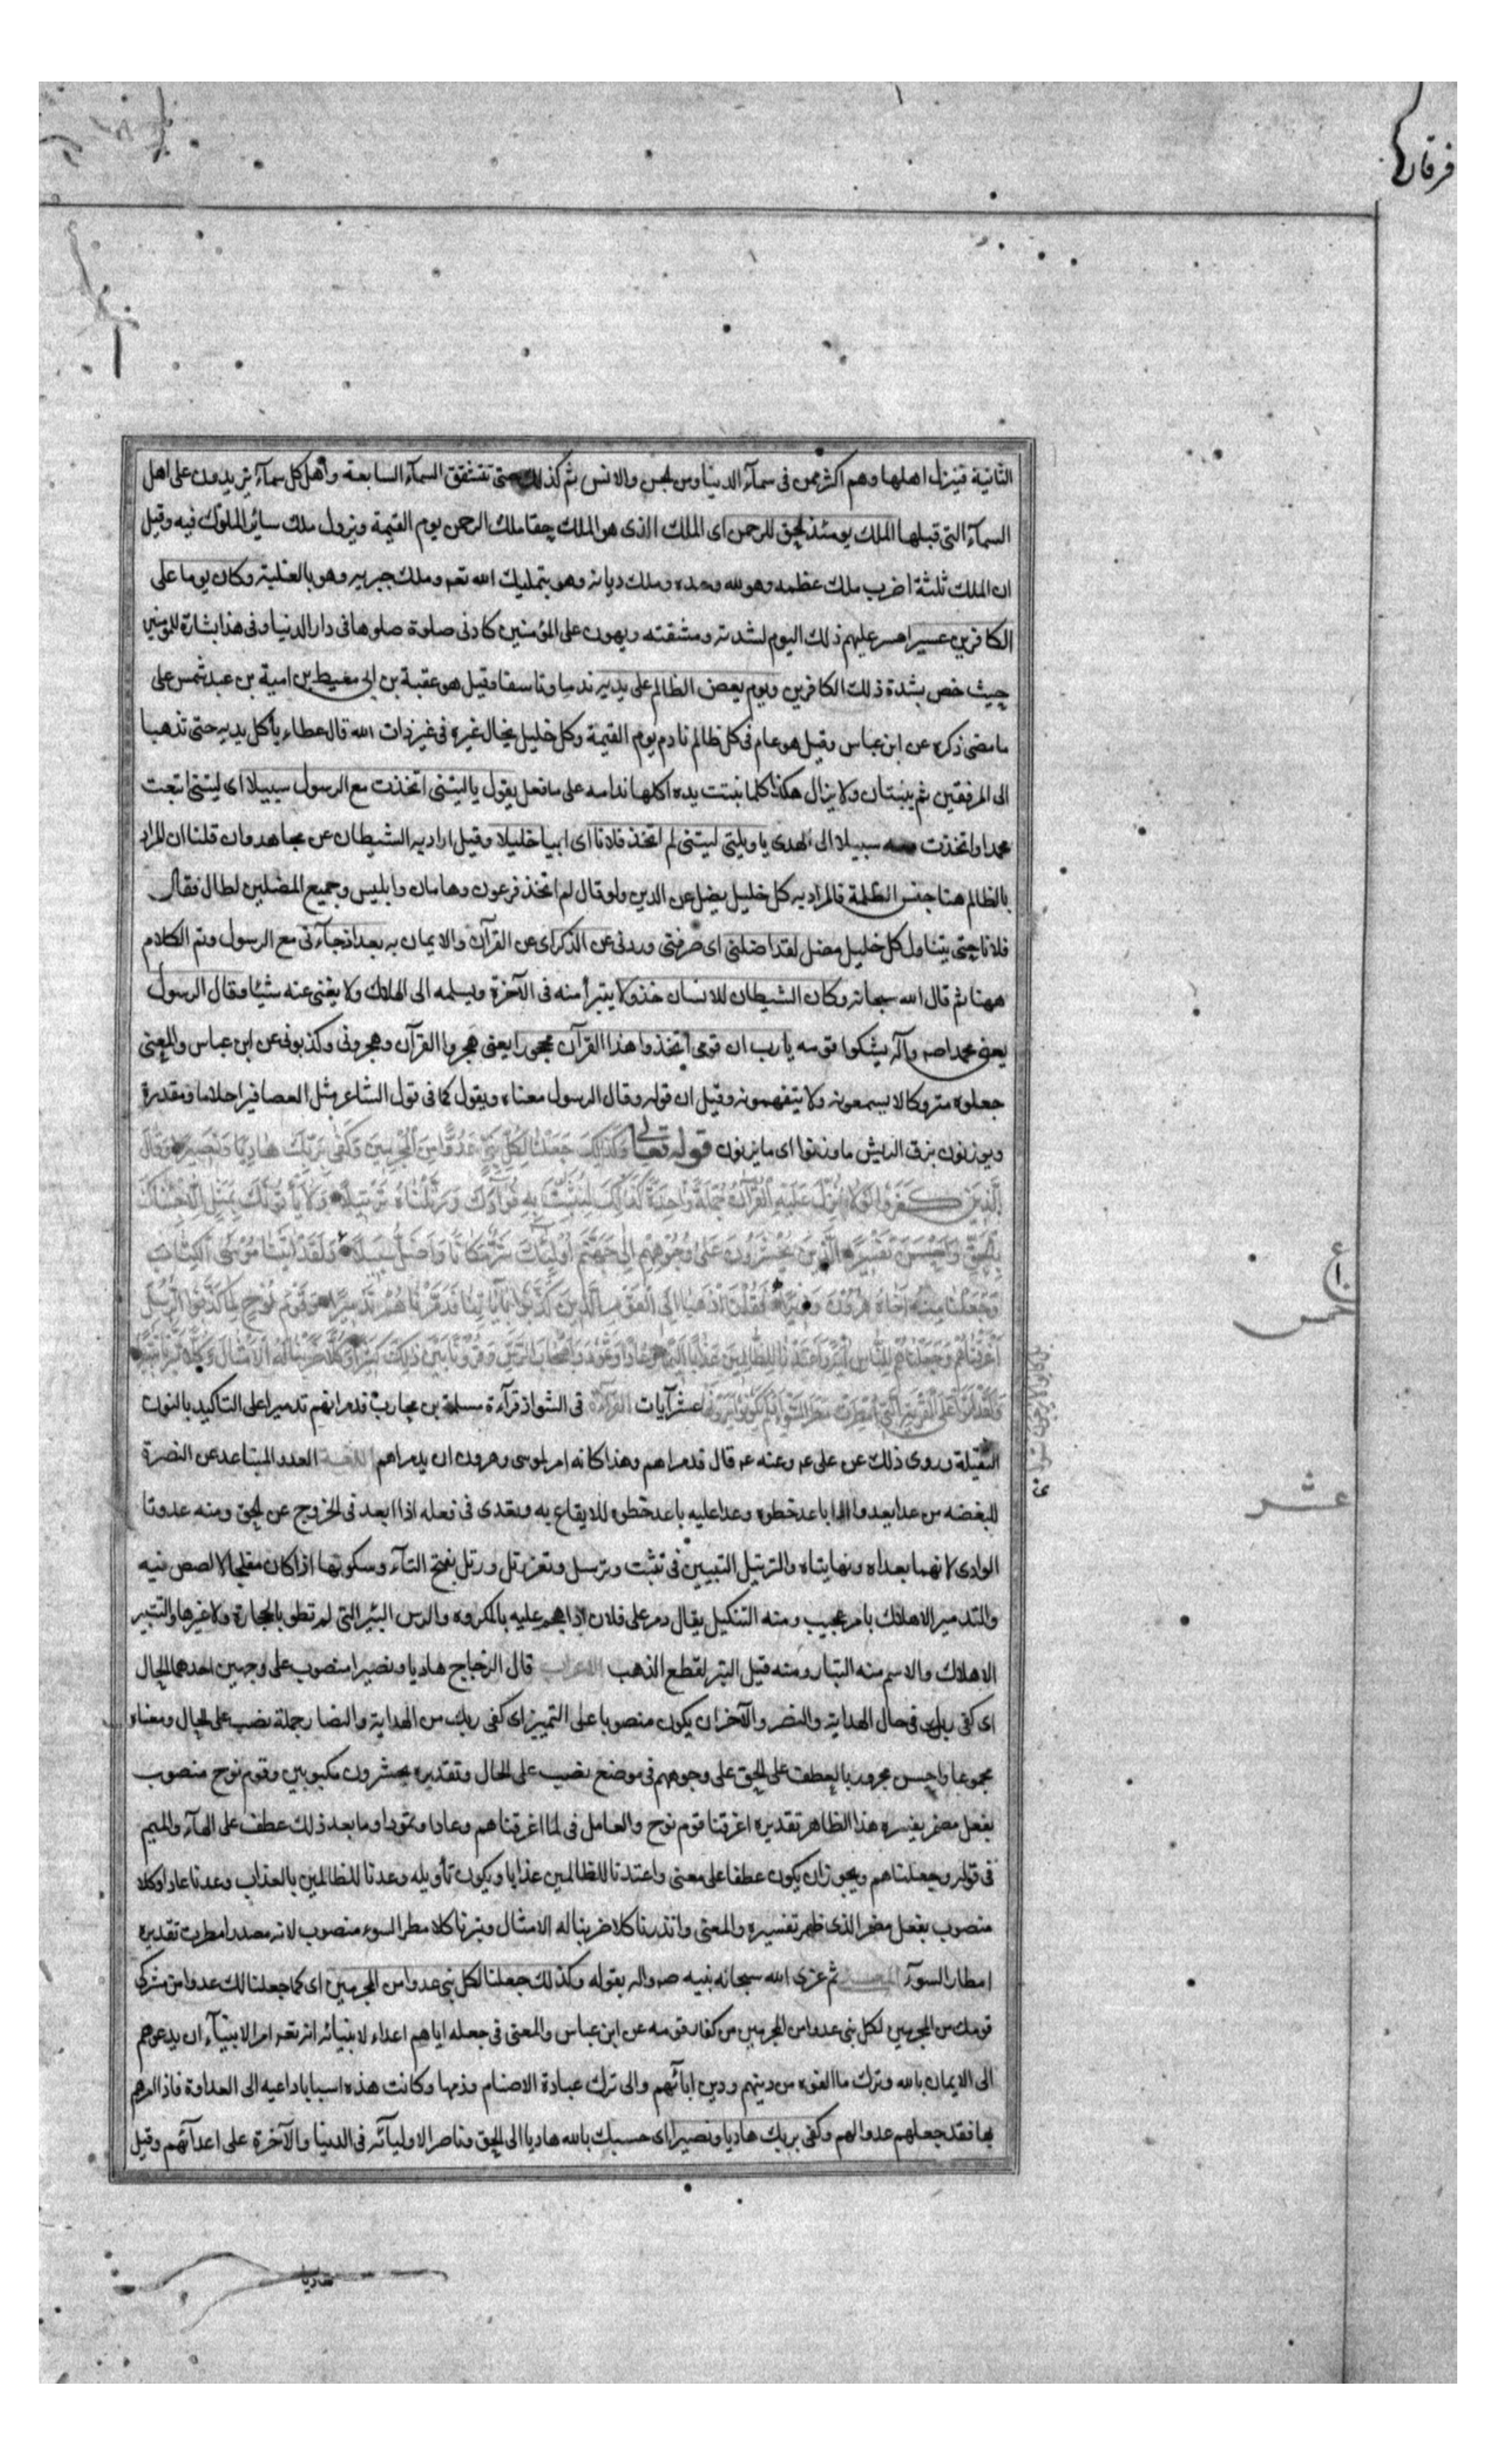 فرقان
الثانية فينزل اهلها وهم اكثر ممن فى سمآء الدنيا ومن الجن والانس ثم كذلك حتى تتشقق السمآء السابعة واهل كل سمآء يزيدون على اهل
السمآء التى قبلها الملك يومئذ الحق للرحمن اى الملك الذى هو الملك حقا ملك الرحمن يوم القيمة ويزول ملك سائر الملوك فيه وقيل
ان الملك ثلثة اضرب ملك عظمه وهو لله وحده وملك ديانه وهو بتمليك الله تعم وملك جبريه وهو بالغلبة وكان يوما على
الكافرين عسيرا عسر عليهم ذلك اليوم لشدته ومشقته ويهون على المؤمنين كادنى صلوة صلوها فى دار الدنيا وفى هذا بشارة للمؤمنين
حيث خص بشدة ذلك الكافرين ويوم يعض الظالم على يديه ندما وتاسفا وقيل هو عقبة بن ابى معيط بن امية بن عبد شمس على
ما مضى ذكره عن ابن عباس وقيل هو عام فى كل ظالم نادم يوم القيمة وكل خليل يخال غيره فى غير ذات الله قال عطاء يأكل يديه حتى تذهبا
الى المرفقين ثم ينبتان ولا يزال هكذا كلما نبتت يده اكلها ندامه على ما فعل يقول يا ليتنى اتخذت مع الرسول سبيلا اى ليتنى اتبعت
محمدا واتخذت معه سبيلا الى الهدى يا ويلتى ليتنى لم اتخذ فلانا اى ابيا خليلا وقيل اراد به الشيطان عن مجاهد وان قلنا ان المراد
بالظالم هنا جنس الظلمة فالمراد به كل خليل يضل عن الدين ولو قال لم اتخذ فرعون وهامان وابليس وجميع المضلين لطال فقال
فلانا حتى يتناول كل خليل مضل لقد اضلنى اى صرفنى وردنى عن الذكر اى عن القرآن والايمان به بعد اذ جآءنى مع الرسول وتم الكلام
ههنا ثم قال الله سبحانه وكان الشيطان للانسان خذولا يتبرأ منه فى الآخرة ويسلمه الى الهلاك ولا يغنى عنه شيئا وقال الرسول
يعنى محمدا صم وآله يشكوا قومه يا رب ان قومى اتخذوا هذا القرآن مهجورا يعنى هجروا القرآن وهجرونى وكذبونى عن ابن عباس والمعنى
جعلوه متروكا لا يسمعونه ولا يتفهمونه وقيل ان قوله وقال الرسول معناه ويقول كما فى قول الشاعر مثل العصافير احلاما ومقدرة
ويوزنون بزف الريش ما وزنوا اى ما يزنون قوله تعالى وَكَذَلِكَ جَعَلْنَا لِكُلِّ نَبِيٍّ عَدُوًّا مِنَ الْمُجْرِمِينَ وَكَفَى بِرَبِّكَ هَادِيًا وَنَصِيرًا وَقَالَ
الَّذِينَ كَفَرُوا لَوْلَا نُزِّلَ عَلَيْهِ الْقُرْآنُ جُمْلَةً وَاحِدَةً كَذَلِكَ لِنُثَبِّتَ بِهِ فُؤَادَكَ وَرَتَّلْنَاهُ تَرْتِيلًا وَلَا يَأْتُونَكَ بِمَثَلٍ إِلَّا جِئْنَاكَ
بِالْحَقِّ وَأَحْسَنَ تَفْسِيرًا الَّذِينَ يُحْشَرُونَ عَلَى وُجُوهِهِمْ إِلَى جَهَنَّمَ أُولَئِكَ شَرٌّ مَكَانًا وَأَضَلُّ سَبِيلًا وَلَقَدْ آتَيْنَا مُوسَى الْكِتَابَ
وَجَعَلْنَا مَعَهُ أَخَاهُ هَرُونَ وَزِيرًا فَقُلْنَا اذْهَبَا إِلَى الْقَوْمِ الَّذِينَ كَذَّبُوا بِآيَاتِنَا فَدَمَّرْنَاهُمْ تَدْمِيرًا وَقَوْمَ نُوحٍ لَمَّا كَذَّبُوا الرُّسُلَ
أَغْرَقْنَاهُمْ وَجَعَلْنَاهُمْ لِلنَّاسِ آيَةً وَأَعْتَدْنَا لِلظَّالِمِينَ عَذَابًا أَلِيمًا وَعَادًا وَثَمُودَ وَأَصْحَابَ الرَّسِّ وَقُرُونًا بَيْنَ ذَلِكَ كَثِيرًا وَكُلًّا ضَرَبْنَا لَهُ الْأَمْثَالَ وَكُلًّا تَبَّرْنَا تَتْبِيرًا
وَلَقَدْ أَتَوْا عَلَى الْقَرْيَةِ الَّتِي أُمْطِرَتْ مَطَرَ السَّوْءِ أَفَلَمْ يَكُونُوا يَرَوْنَهَا عشر آيات القرآءة فى الشواذ قرآءة مسلمة بن محارب فدمرانهم تدميرا على التاكيد بالنون
الثقيلة وروى ذلك عن على عم وعنه عم قال فدمراهم وهذا كانه امر لموسى وهرون ان يدمراهم اللغة العدو المتباعد عن النصرة
للبغضه من عدا يعدو اذا باعد خطوه وعدا عليه باعد خطوه للايقاع به وتعدى فى فعله اذا ابعد فى الخروج عن الحق ومنه عدوتا
الوادى لانهما بعداه ونهايتاه والترتيل التبيين فى تثبت وترسل وثغر رتل ورتل بفتح التآء وسكونها اذا كان مفلجا لا لصص فيه
والتدمير الاهلاك بامر عجيب ومنه التنكيل يقال دمر على فلان اذا هجم عليه بالمكروه والرس البئر التى لم تطو بالحجارة ولا غيرها والتتبير
الاهلاك والاسم منه التبار ومنه قيل التبر لقطع الذهب الاعراب قال الزجاج هاديا ونصيرا منصوب على وجهين احدهما الحال
اى كفى ربك فى حال الهداية والنصر والآخر ان يكون منصوبا على التمييز اى كفى ربك من الهداية والنصار جملة نصب على الحال ومعناه
مجموعا واحسن مجرور بالعطف على الحق على وجوههم فى موضع نصب على الحال وتقديره يحشرون مكبوبين وقوم نوح منصوب
بفعل مضمر يفسره هذا الظاهر تقديره اغرقنا قوم نوح والعامل فى لما اغرقناهم وعادا وثمودا وما بعد ذلك عطف على الهآء والميم
فى قوله وجعلناهم ويجوز ان يكون عطفا على معنى واعتدنا للظالمين عذابا ويكون تأويله وعدنا للظالمين بالعذاب وعدنا عادا وكلا
منصوب بفعل مضمر الذى ظهر تفسيره والمعنى وانذرنا كلا ضربنا له الامثال وتبرنا كلا مطر السوء منصوب لانه مصدر امطرت تقديره
امطار السوء المعنى ثم عزى الله سبحانه نبيه صم واله بقوله وكذلك جعلنا لكل نبى عدوا من المجرمين اى كما جعلنا لك عدوا من مشركى
قومك من المجرمين لكل نبى عدوا من المجرمين من كفار قومه عن ابن عباس والمعنى فى جعله اياهم اعداء لانبيائه انه تعم امر الانبيآء ان يدعوهم
الى الايمان بالله وترك ما الفوه من دينهم ودين ابائهم والى ترك عبادة الاصنام وذمها وكانت هذه اسبابا داعيه الى العداوة فاذا امرهم
بها فقد جعلهم عدوا لهم وكفى بربك هاديا ونصيرا اى حسبك بالله هاديا الى الحق وناصرا لاوليآئه فى الدنيا والآخرة على اعدآئهم وقيل
خمس
عشر
هاديا